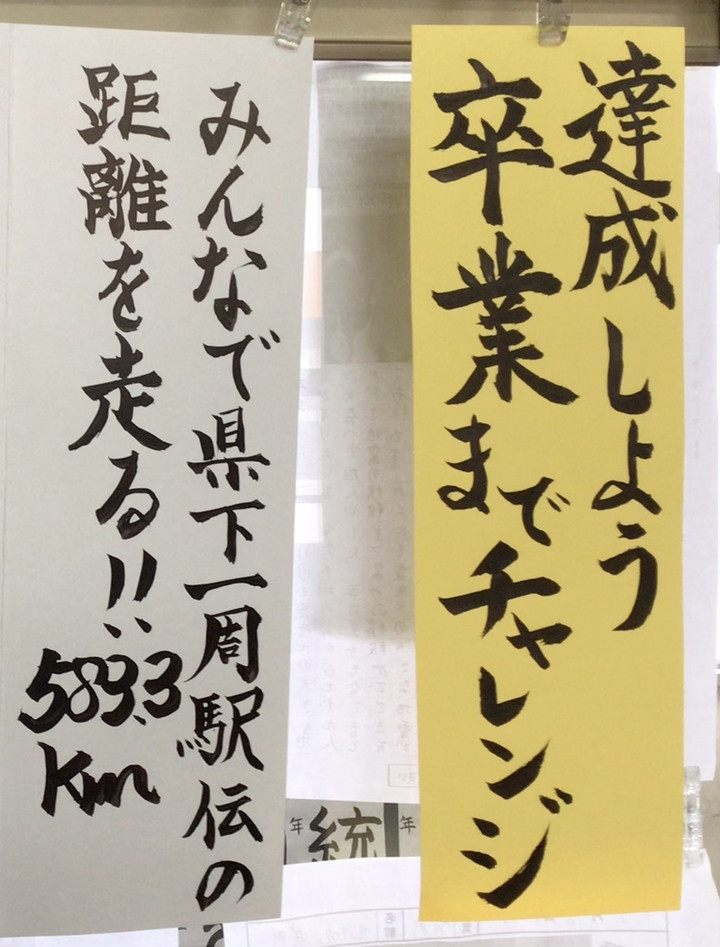 達成しよう
卒業までチャレンジ
みんなで県下一周駅伝の
距離を走る!!
589.3
Km
年
統
年